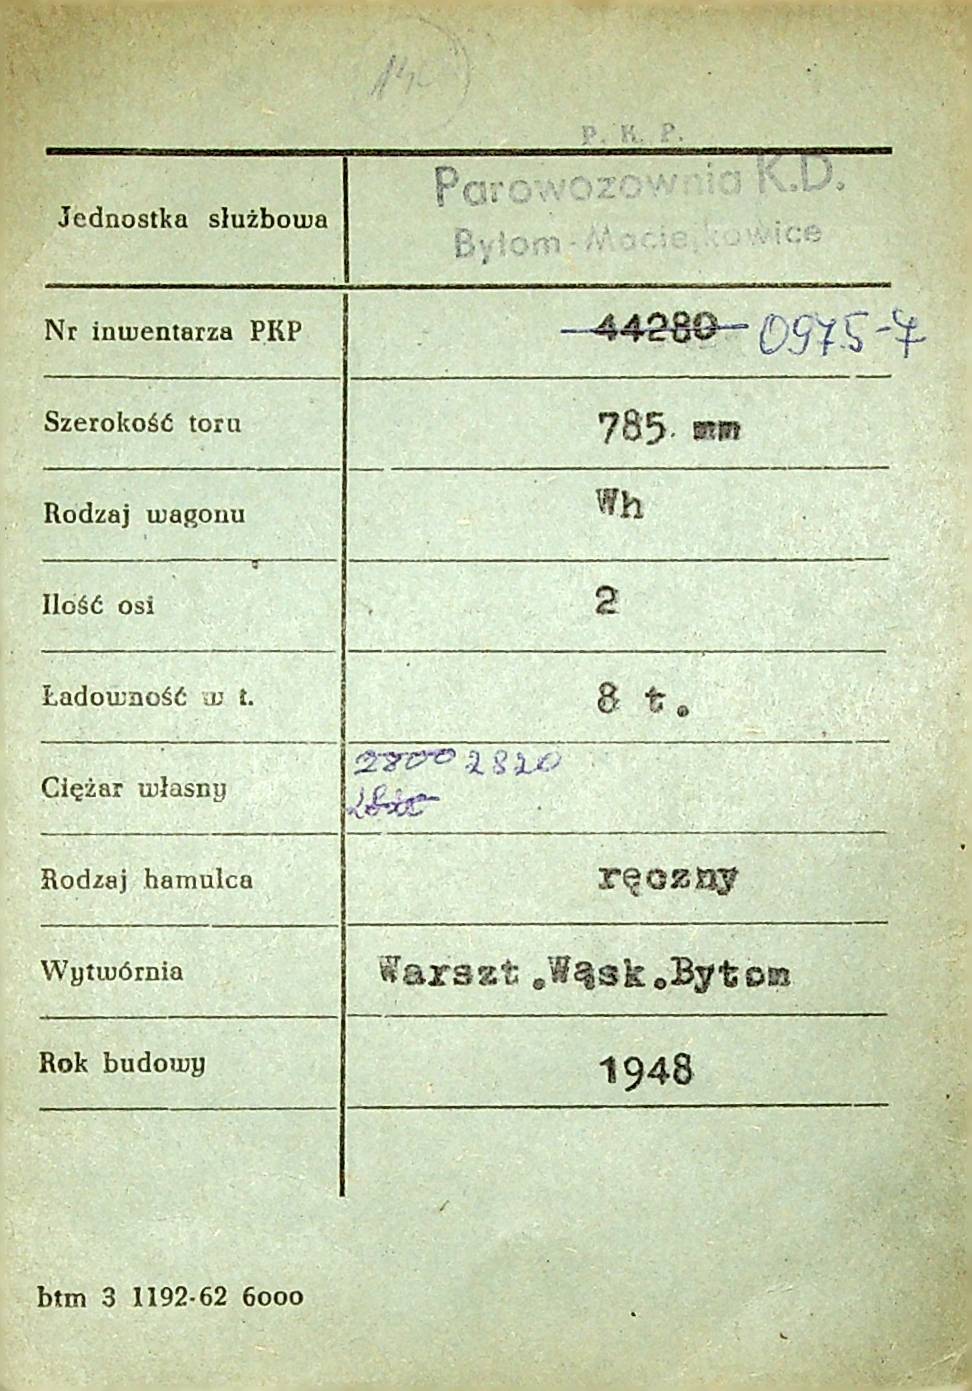 P. K. P.
Jednostka służbowa Parowozownia K.D.
Bytom-Maciejkowice
Nr inwentarza PKP 44280 0975-7
Szerokość toru 785 mm
Rodzaj wagonu Wh
Ilość osi 2
Ładowność w t. 8 t.
2800 2820
Ciężar własny
Rodzaj hamulca ręczny
Wytwórnia Warszt.Wąsk.Bytom
Rok budowy 1948
btm 3 1192-62 6000